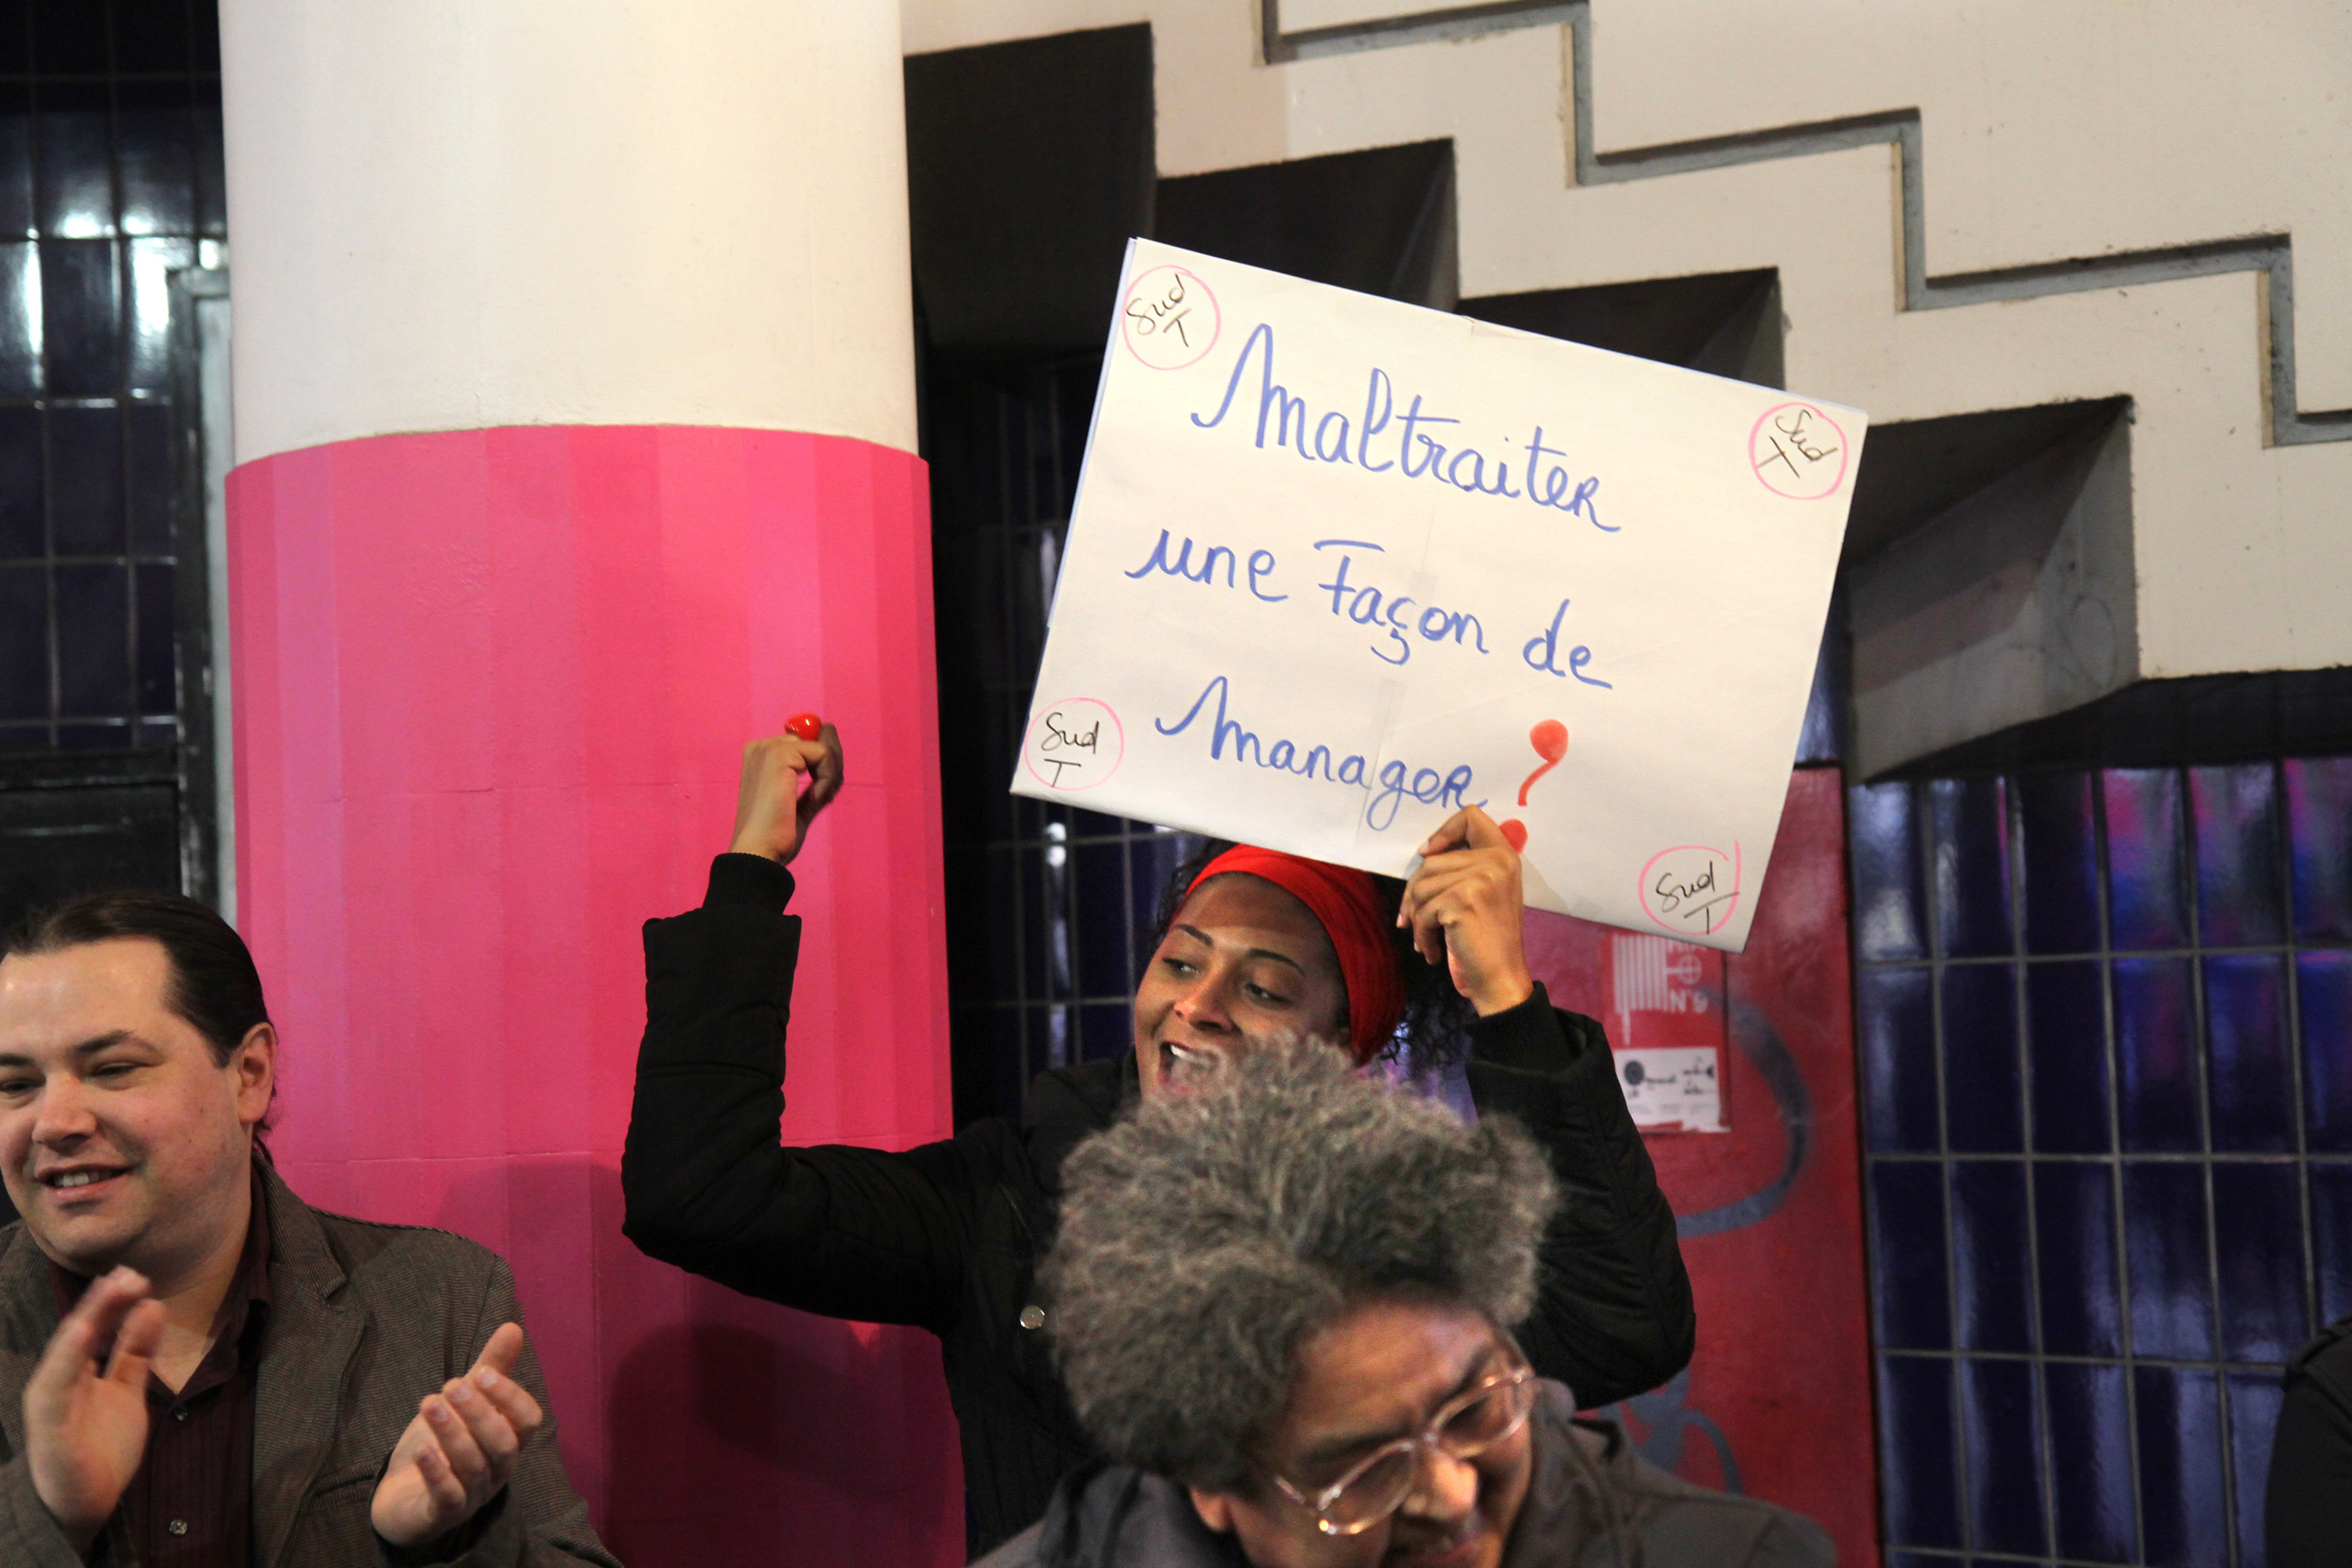 Sud
T
Sud
T
Maltraiter
une Façon de
Manager ?
Sud
T
Sud
T
N°9